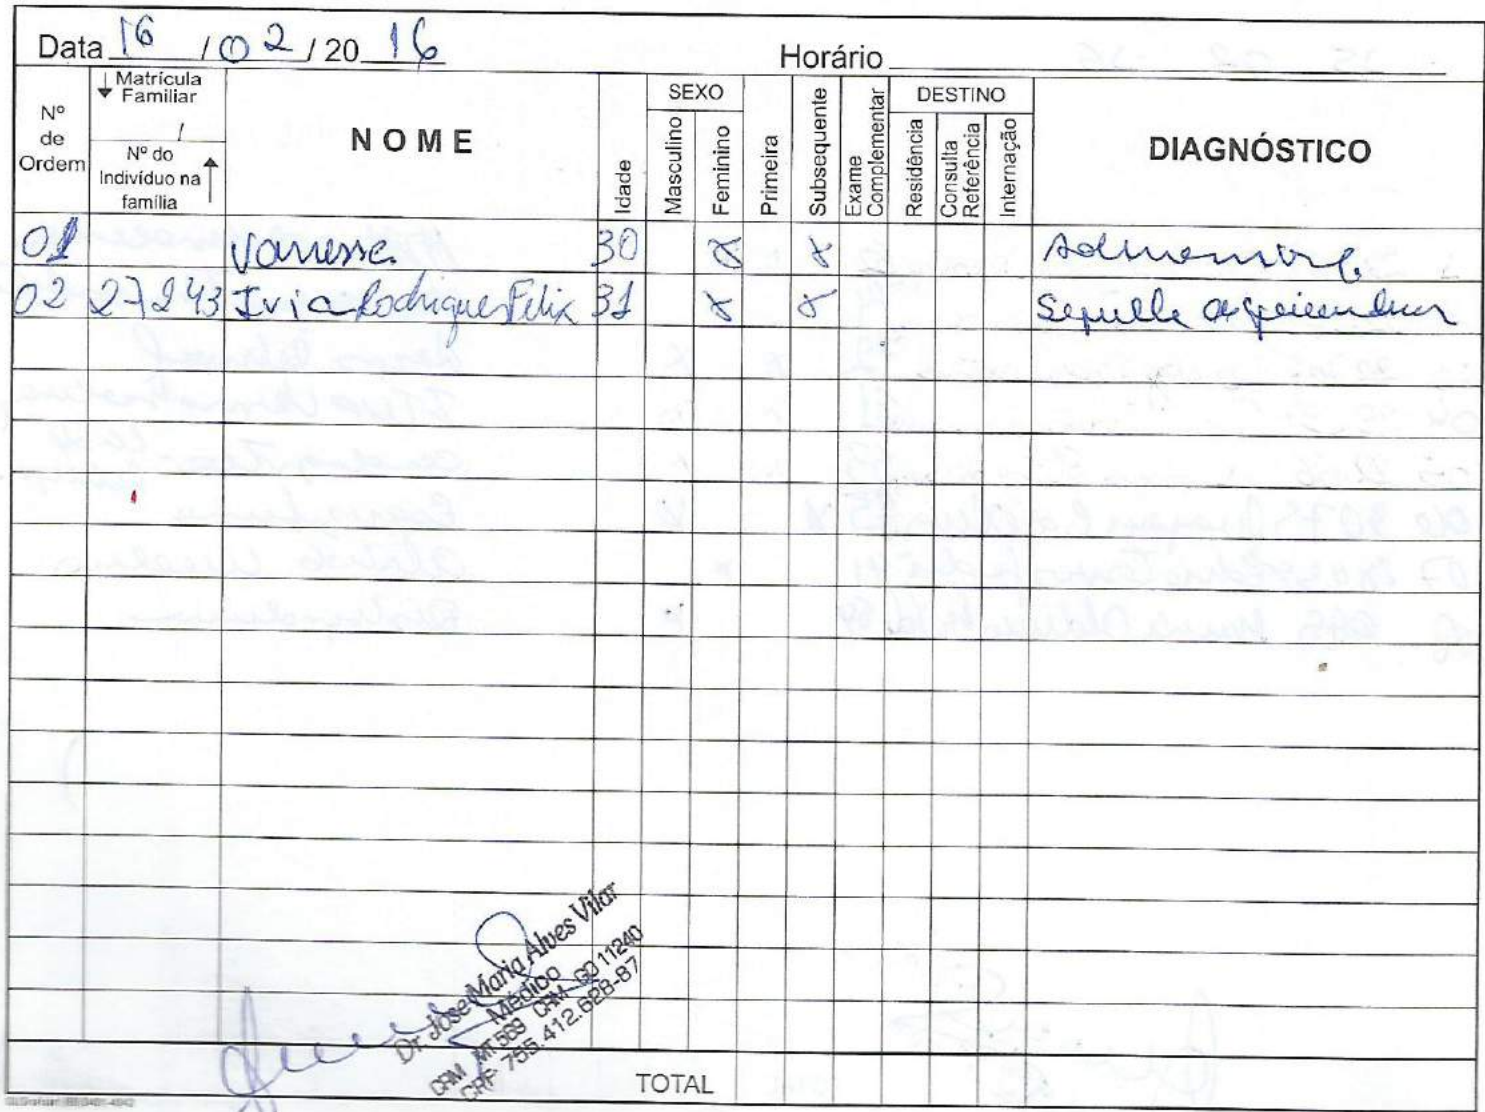 Data 16 / 02 / 20 16 Horário
Nº de Ordem
Matrícula Familiar
/
Nº do Indivíduo na família
NOME
Idade
SEXO
Masculino
Feminino
Primeira
Subsequente
Exame Complementar
DESTINO
Residência
Consulta Referência
Internação
DIAGNÓSTICO
01 Vanessa 30 x x
02 27243 Ivia Rodrigues Felix 31 x x
Dr. Jose Maria Alves Vilar
Médico
CRM MT 569 CRM GO 11240
CPF 755.412.628-87
TOTAL